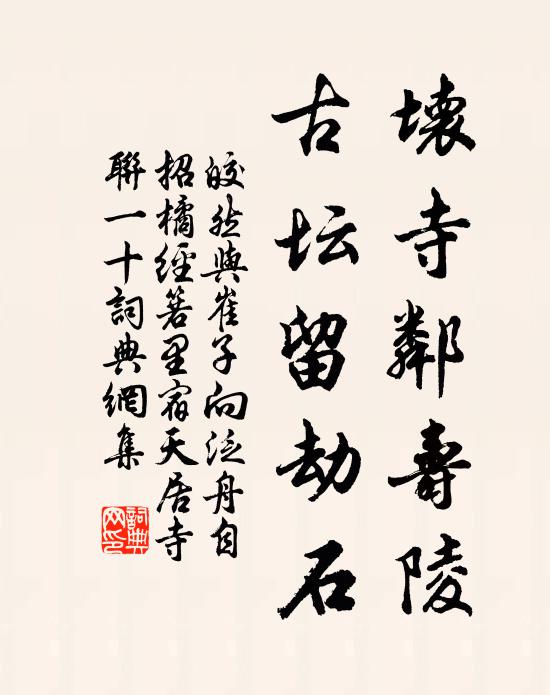 壊寺鄰壽陵
古坛留劫石
皎然與崔子向泛舟自
招橘經箬里宿天居寺
聯一十詞典網集
詞典
网印